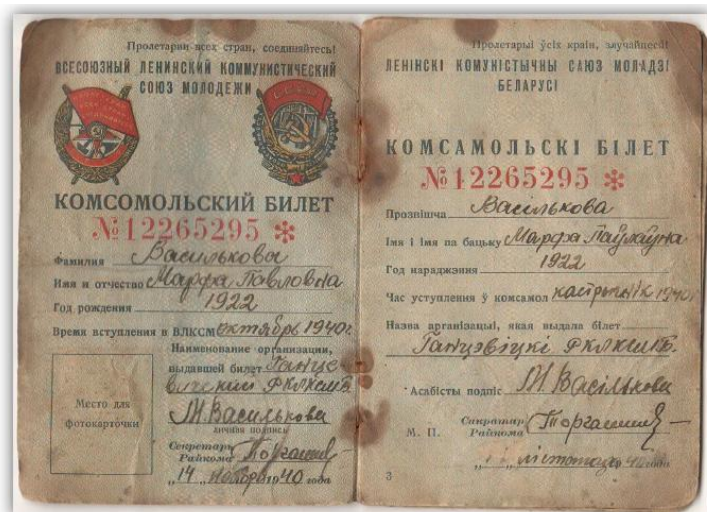 Пролетарии всех стран, соединяйтесь!
ВСЕСОЮЗНЫЙ ЛЕНИНСКИЙ КОММУНИСТИЧЕСКИЙ
СОЮЗ МОЛОДЕЖИ
КОМСОМОЛЬСКИЙ БИЛЕТ
№12265295 *
Фамилия Василькова
Имя и отчество Марфа Павловна
Год рождения 1922
Время вступления в ВЛКСМ октябрь 1940г
Наименование организации,
выдавшей билет Ганце
вичским РКЛКСМБ
Место для
фотокарточки
М.Василькова
личная подпись
Секретарь
Райкома
"14" ноября 1940 года
Пролетарыі ўсіх краін, злучайцеся!
ЛЕНІНСКІ КОМУНІСТЫЧНЫ САЮЗ МОЛАДЗІ
БЕЛАРУСІ
КОМСАМОЛЬСКІ БІЛЕТ
№12265295 *
Прозвішча Васількова
Імя і імя па бацьку Марфа Паўлаўна
Год нараджэння 1922
Час уступлення ў комсамол кастрычнік 1940г
Назва арганізацыі, якая выдала білет
Ганцэвіцкі РКЛКСМБ.
Асабісты подпіс М.Васількова
М. П.
Сакратар
Райкома
лістопада 1940 года
3